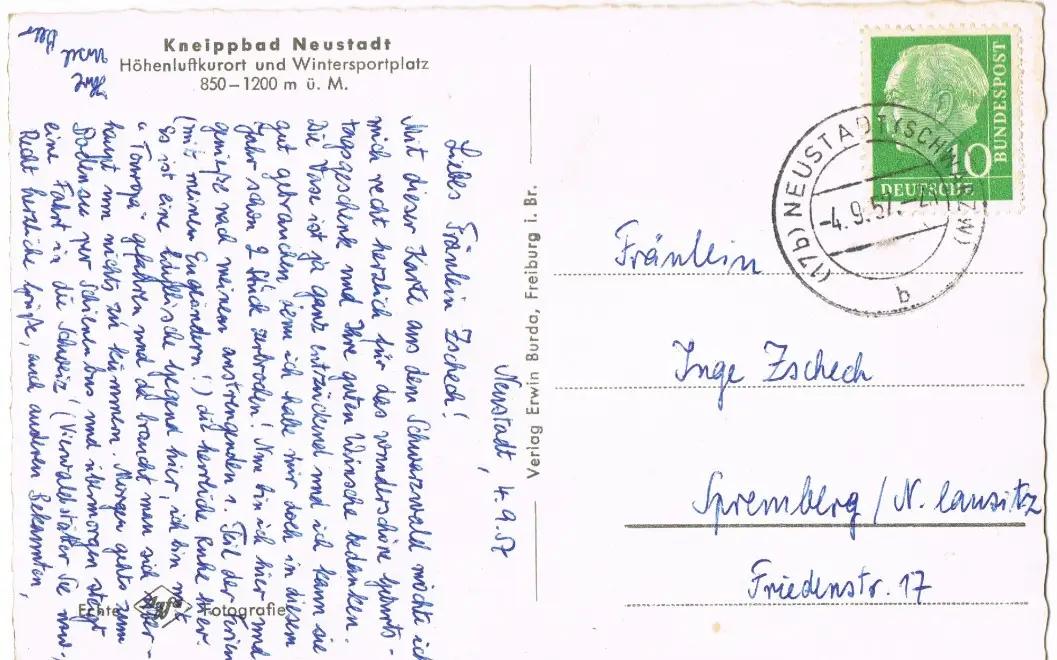 Kneippbad Neustadt
Höhenluftkurort und Wintersportplatz
850–1200 m ü. M.
Neustadt, 4.9.57
Liebes Fräulein Zschech!
Mit dieser Karte aus dem Schwarzwald möchte ich
mich recht herzlich für das wunderschöne Geburts-
tagsgeschenk und Ihre guten Wünsche bedanken.
Die Vase ist ja ganz entzückend und ich kann sie
gut gebrauchen, denn ich habe mir doch in diesem
Jahr schon 2 Stück zerbrochen! Nun bin ich hier und
genieße nach meinem anstrengenden 1. Teil der Ferien
(mit meinen Engländern!) die herrliche Ruhe hier.
Es ist eine liebliche Gegend hier, ich bin mit
"Touropa" gefahren und da braucht man sich über-
haupt um nichts zu kümmern. Morgen gehts zum
Bodensee per Schienenbus und übermorgen steigt
eine Fahrt in die Schweiz! (Vierwaldstätter See usw.,
Recht herzliche Grüße, auch anderen Bekannten,
Ihre
Echte Agfa Fotografie
Verlag Erwin Burda, Freiburg i. Br.
DEUTSCHE
BUNDESPOST
10
(17b) NEUSTADT (SCHWARZW)
-4.9.57.
b
Fräulein
Inge Zschech
Spremberg / N. Lausitz
Friedenstr. 17